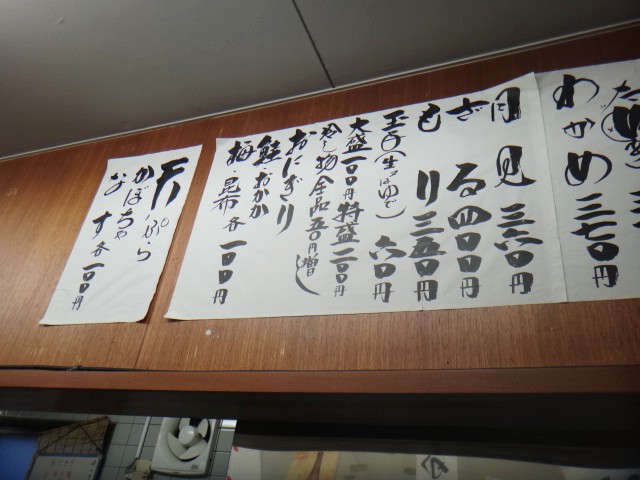 わかめ 三七〇円
月見 三六〇円
ざる 四〇〇円
もり 三五〇円
玉子(生・ゆで) 六〇円
大盛一〇〇円 特盛二〇〇円
冷し物全品五〇円増し
おにぎり
鮭・おかか
梅・昆布 各 一〇〇円
天ぷら
かぼちゃ
なす 各 一〇〇円